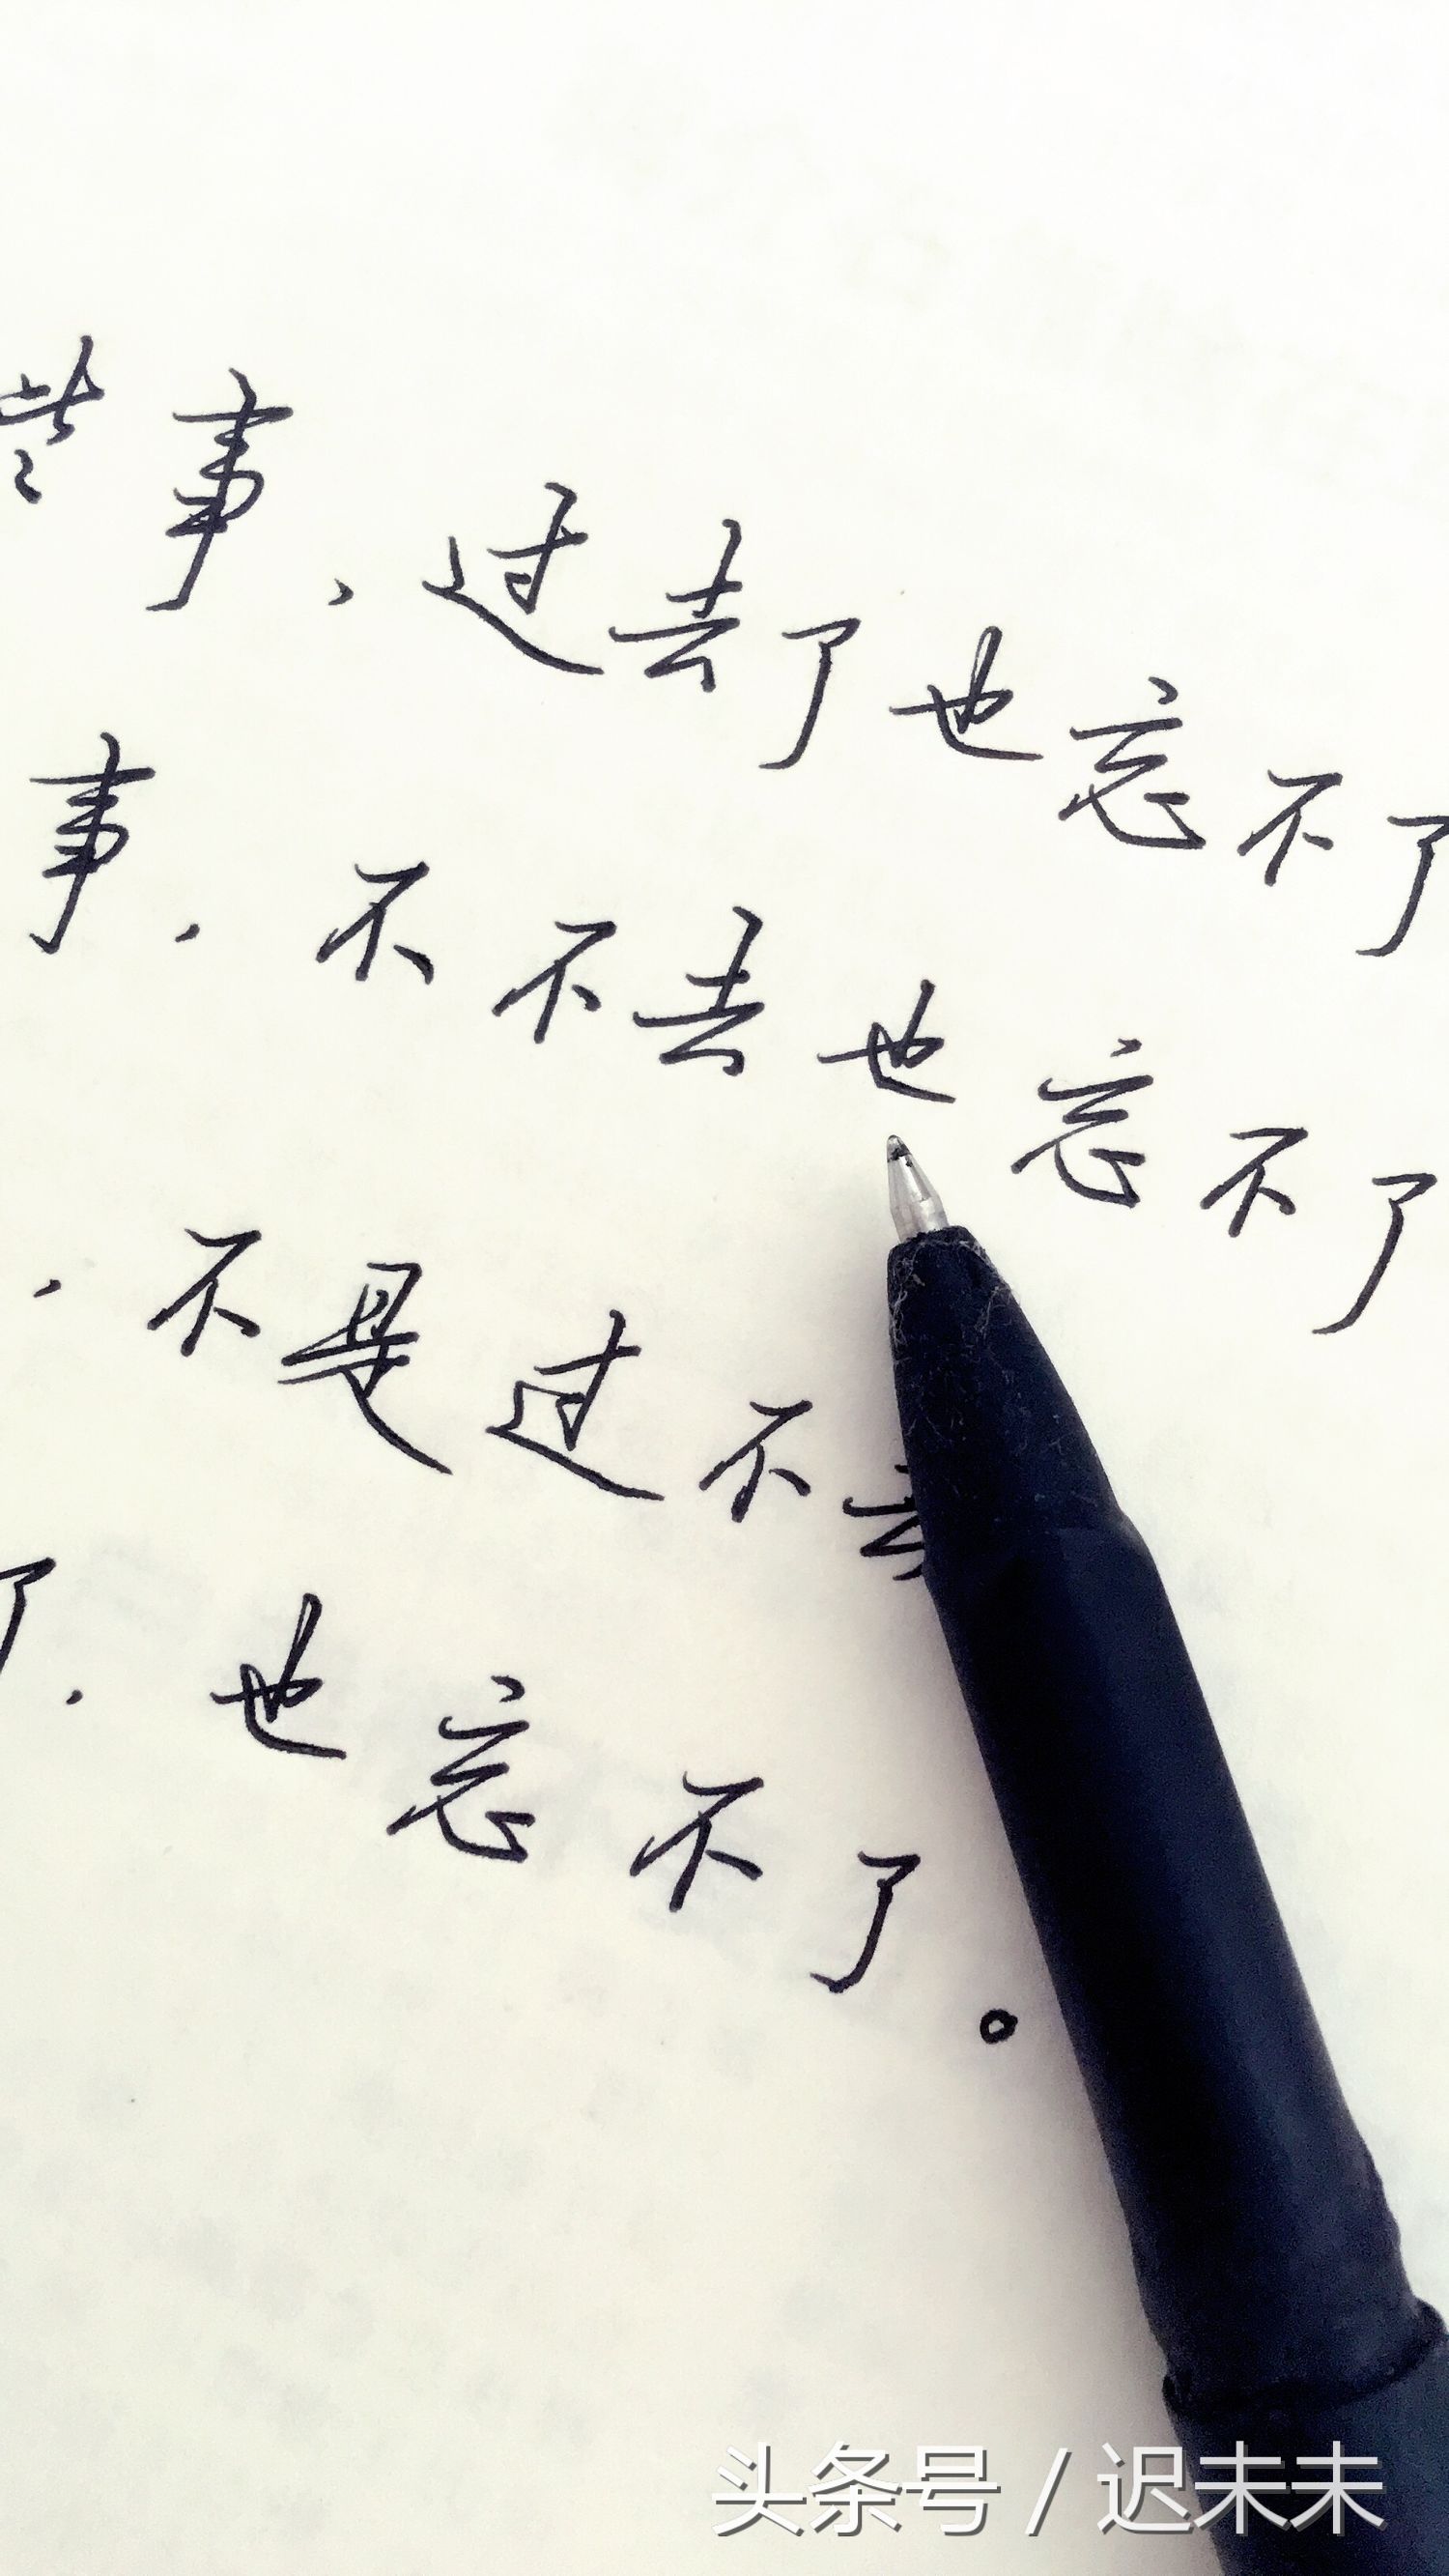 些事，过去了也忘不了
事，不不去也忘不了
，不是过不去
了，也忘不了。
头条号 / 迟未末